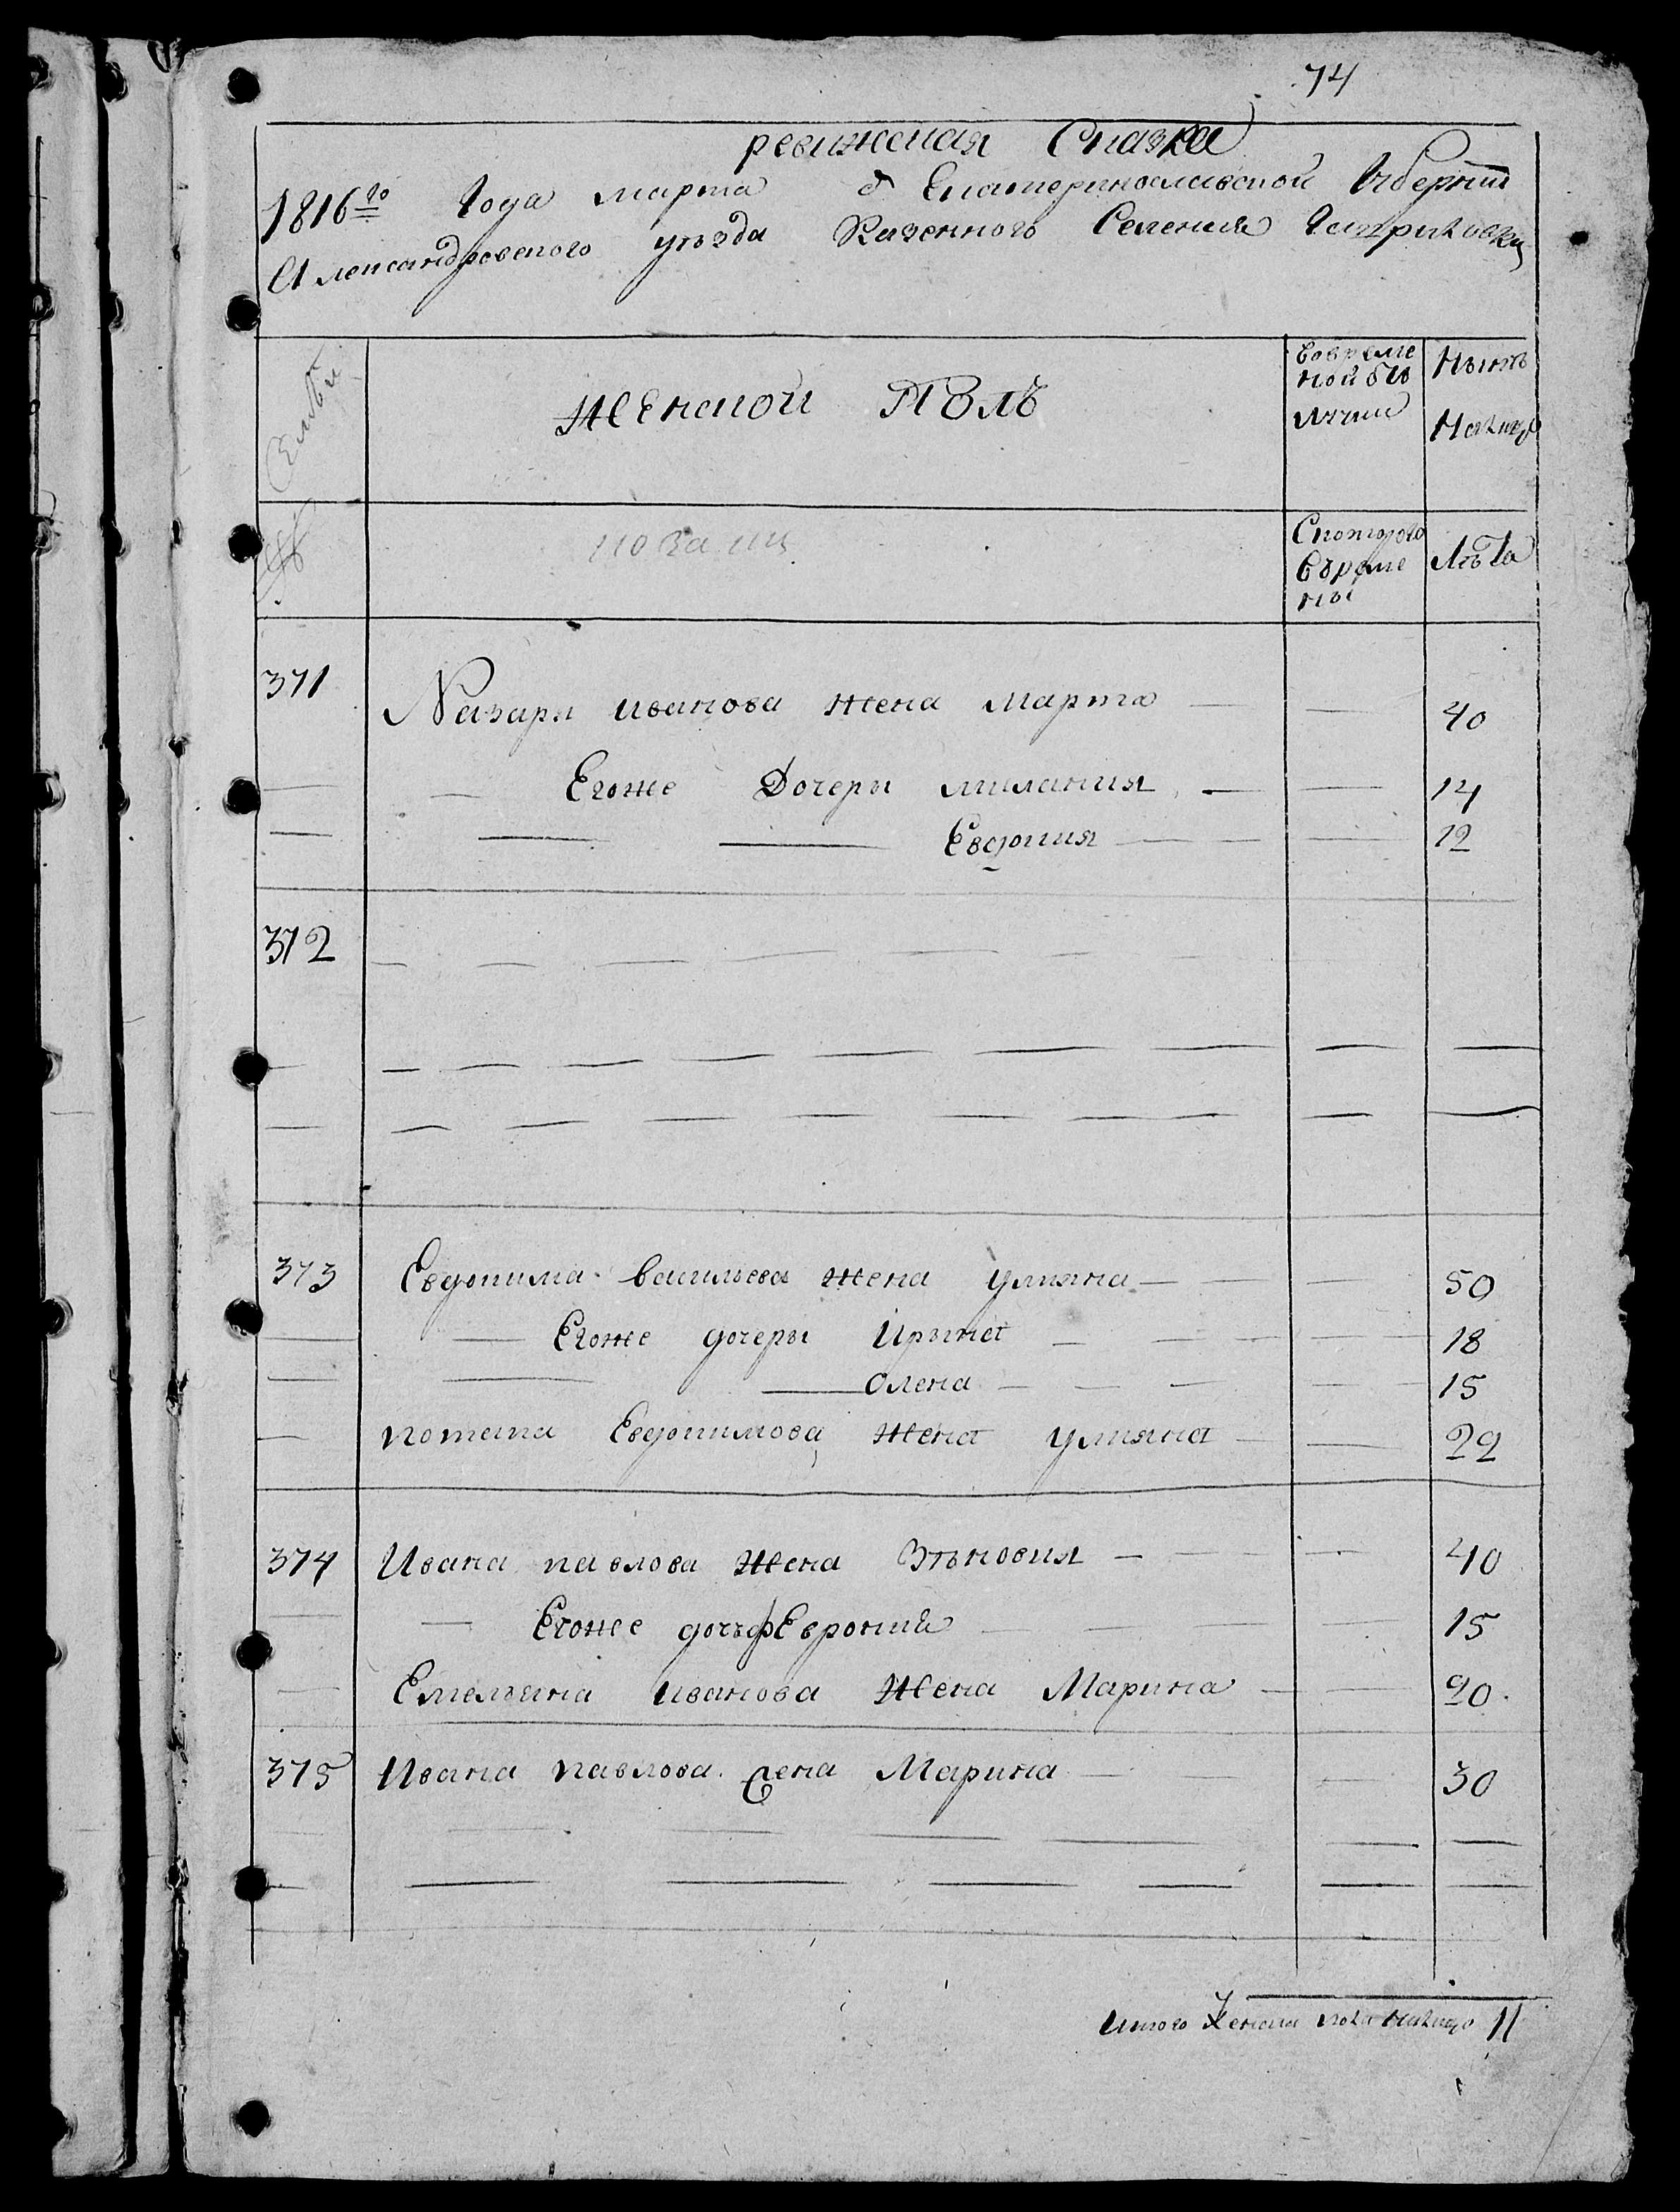 74
ревижская Сказка
1816го Года марта д Екатеринославской Губернии
Александровского уезда Казенного Селения
Семьи
женской Полъ
вовреме
ной от
лучки
Нынѣ
Налицо
№
Скоторого
время
ны
Лѣта
371 Назаря иванова жена марта — — 40
— — Егоже Дочери милания — — 14
— — — Евдокия — — 12
372
373 Евдокима васильева жена улияна — — 50
— — Егоже дочери Ирина — — 18
— — — Олена — — 15
— потапа Евдокимова жена улияна — — 22
374 Ивана павлова жена Зѣновия — — 40
— — Егоже дочь ФЕврония — — 15
— Емельяна иванова жена Марина — — 20
375 Ивана павлова жена Марина — — 30
итого Женска пола налицо 11